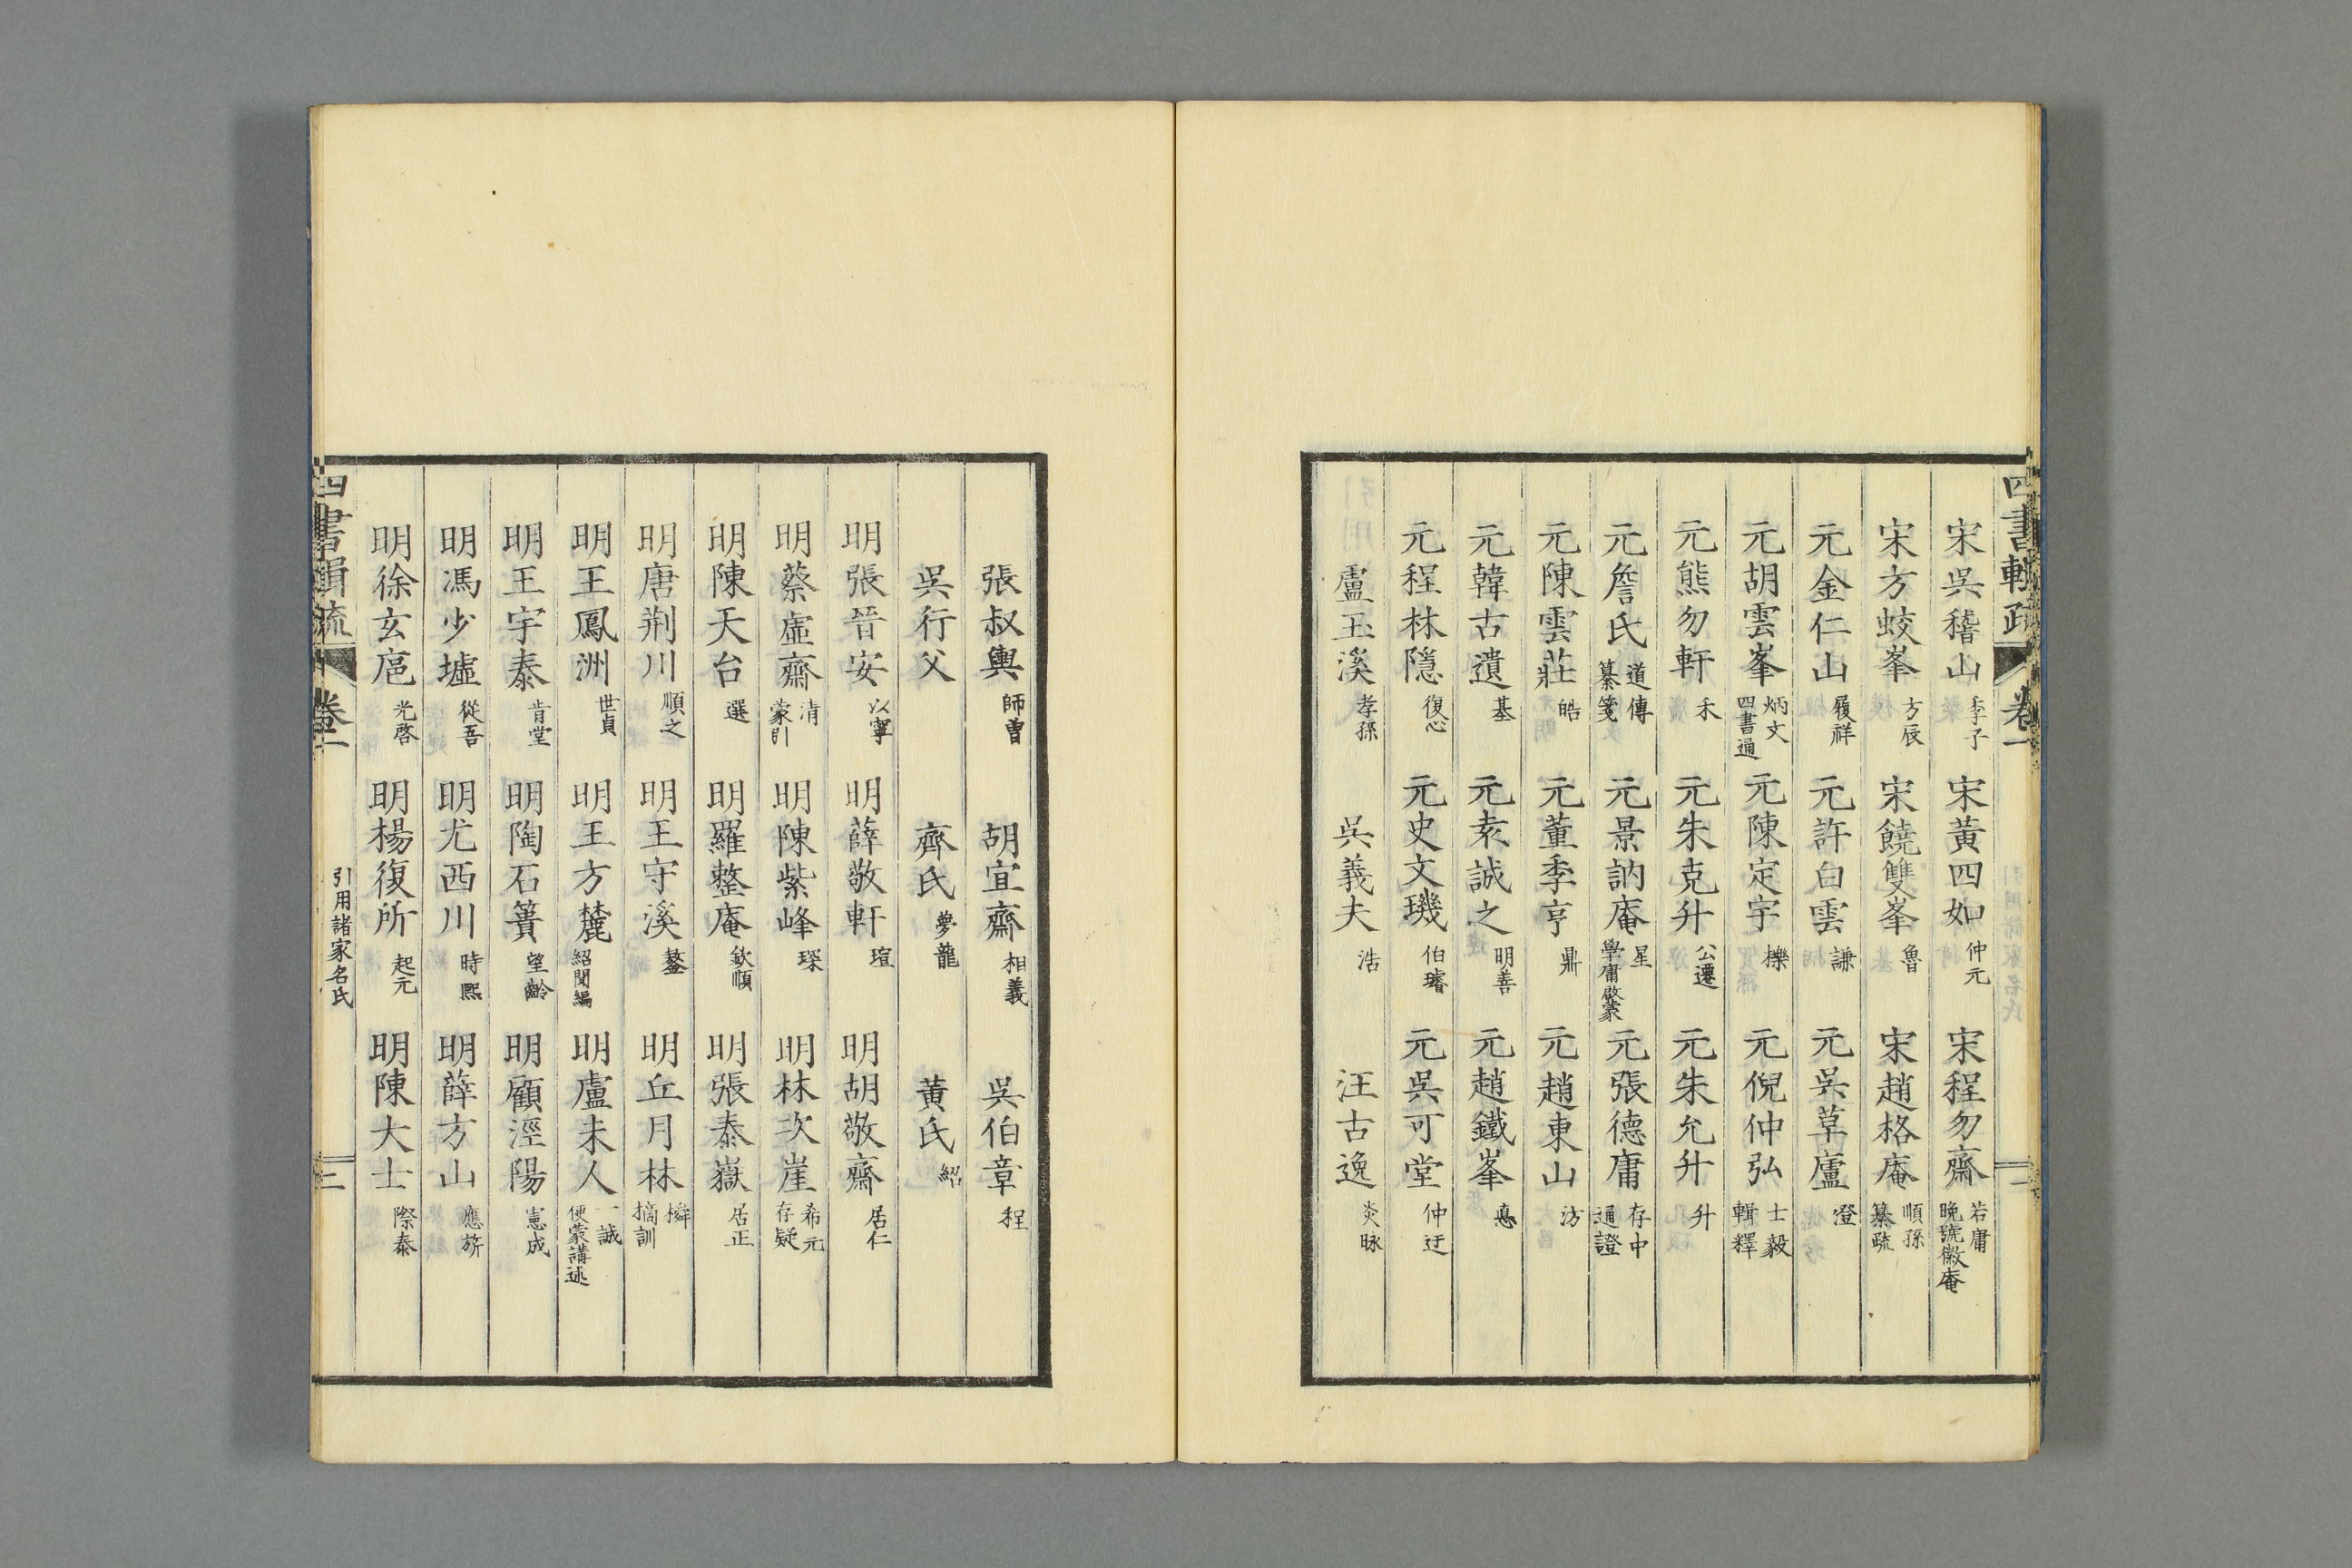 四書輯疏 卷一
宋吳稽山 季子 宋黃四如 仲元 宋程勿齋 若庸 晚號徽庵
宋方蛟峯 方辰 宋饒雙峯 魯 宋趙格庵 順孫 纂疏
元金仁山 履祥 元許白雲 謙 元吳草廬 澄
元胡雲峯 炳文 四書通 元陳定宇 櫟 元倪仲弘 士毅 輯釋
元熊勿軒 禾 元朱克升 公遷 元朱允升 升
元詹氏 道傳 纂箋 元景訥庵 星 學庸啟蒙 元張德庸 存中 通證
元陳雲莊 皓 元董季亨 鼎 元趙東山 汸
元韓古遺 基 元袁誠之 明善 元趙鐵峯 悳
元程林隱 復心 元史文璣 伯璿 元吳可堂 仲迂
盧玉溪 孝孫 吳義夫 浩 汪古逸 炎昹
張叔輿 師曾 胡宜齋 相義 吳伯章 程
吳行父 齊氏 夢龍 黃氏 紹
明張晉安 以寧 明薛敬軒 瑄 明胡敬齋 居仁
明蔡虛齋 清 蒙引 明陳紫峰 琛 明林次崖 希元 存疑
明陳天台 選 明羅整庵 欽順 明張泰嶽 居正
明唐荆川 順之 明王守溪 鏊 明丘月林 橓 摘訓
明王鳳洲 世貞 明王方麓 紹聞編 明盧未人 一誠 便蒙講述
明王宇泰 肯堂 明陶石簣 望齡 明顧涇陽 憲成
明馮少墟 從吾 明尤西川 時熈 明薛方山 應旂
明徐玄扈 光啓 明楊復所 起元 明陳大士 際泰
四書輯疏 卷一 引用諸家名氏 二